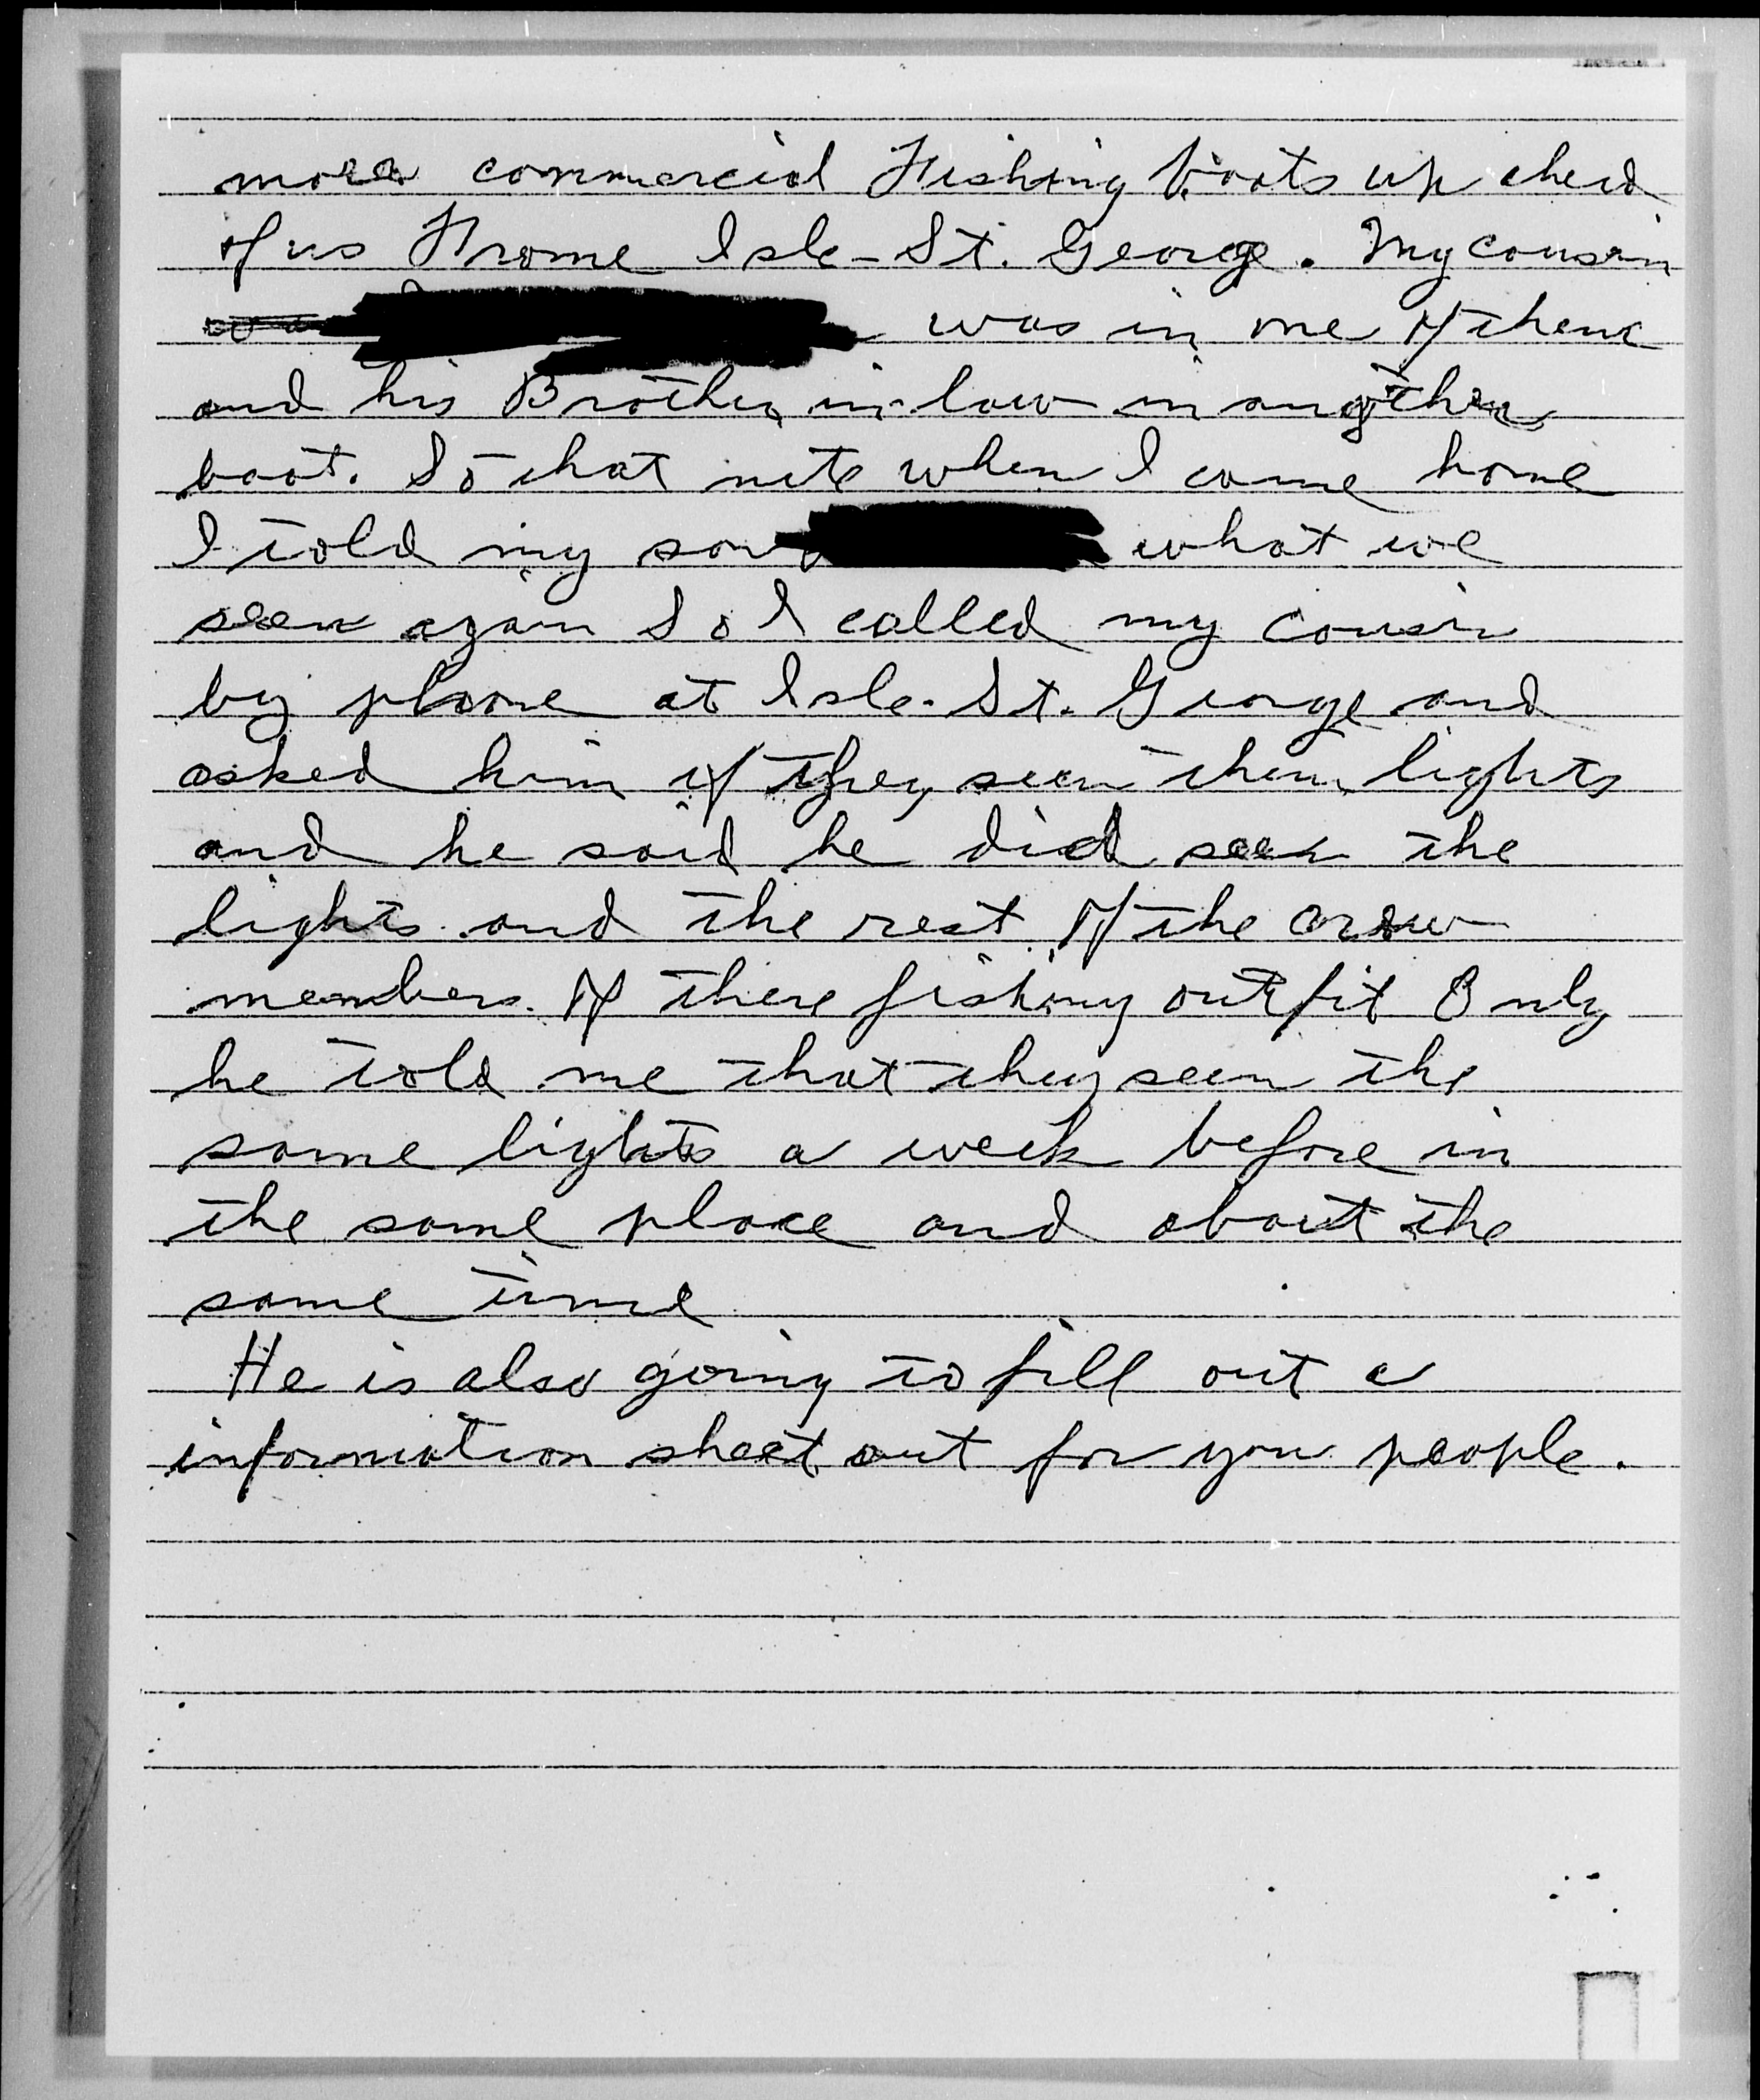 more commercial Fishing boats up ahead
of us Frome Isle-St. George. My cousin
was in one of them
and his Brother in-law in another
boat. So that nite when I come home
I told my son what we
seen again So I called my cousin
by phone at Isle-St. George and
asked him if they seen them lights
and he said he did seen the
lights and the rest of the crew
members of there fishing outfit Only
he told me that they seen the
same lights a week before in
the same place and about the
same time
He is also going to fill out a
information sheet out for you people.